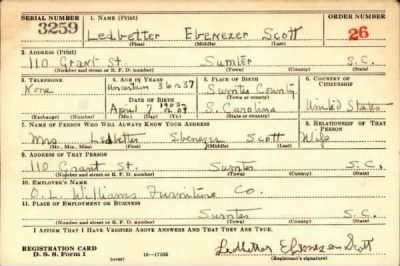 SERIAL NUMBER 1. NAME (Print) ORDER NUMBER
3259 Ledbetter Ebenezer Scott 26
(First) (Middle) (Last)
2. ADDRESS (Print)
110 Grant St. Sumter S.C.
(Number and street or R. F. D. number) (Town) (County) (State)
3. TELEPHONE 4. AGE IN YEARS 5. PLACE OF BIRTH 6. COUNTRY OF CITIZENSHIP
None Uncertain 36 or 37 Sumter County
DATE OF BIRTH
April 7 1903 or 04 S. Carolina United States
(Exchange) (Number) (Mo.) (Day) (Yr.) (State or country)
7. NAME OF PERSON WHO WILL ALWAYS KNOW YOUR ADDRESS 8. RELATIONSHIP OF THAT PERSON
Mrs Ledbetter Ebenezer Scott Wife
(Mr., Mrs., Miss) (First) (Middle) (Last)
9. ADDRESS OF THAT PERSON
110 Grant St. Sumter S.C.
(Number and street or R. F. D. number) (Town) (County) (State)
10. EMPLOYER'S NAME
O.L. Williams Furniture Co.
11. PLACE OF EMPLOYMENT OR BUSINESS
Sumter S.C.
(Number and street or R. F. D. number) (Town) (County) (State)
I AFFIRM THAT I HAVE VERIFIED ABOVE ANSWERS AND THAT THEY ARE TRUE.
REGISTRATION CARD Ledbetter Ebenezer Scott
D. S. S. Form 1 (over) 16-17105 (Registrant's signature)